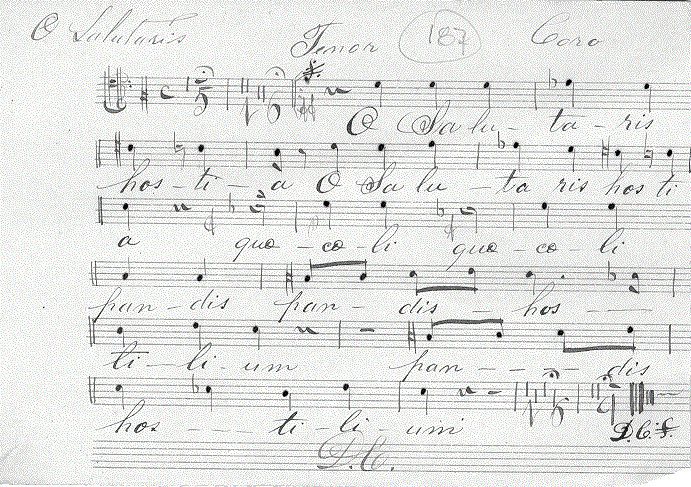 O Salutaris
Tenor 187 Coro
O Salu - ta - ris
hos - ti - a O Salu - ta ris hos ti
a quo - co - li quo - co - li
pan - dis pan - dis - hos - - -
ti - li - um pan - - - - dis
hos - - - ti - li - um D.C.
D.C.